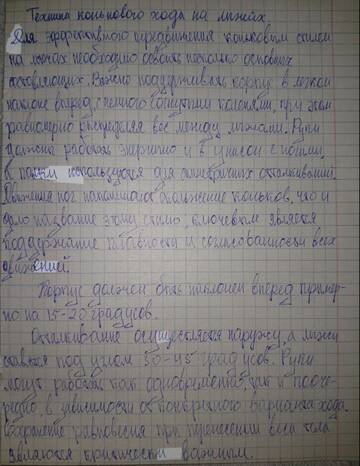 Техника конькового хода на лыжах.
Для эффективного передвижения коньковым стилем
на лыжах необходимо освоить несколько основных
составляющих. Важно поддерживать корпус в легком
наклоне вперед, с немного согнутыми коленями, при этом
равномерно распределяя вес между лыжами. Руки
должны работать энергично и в унисон с ногами,
а палки используются для симметричных отталкиваний.
Движения ног напоминают скольжение коньков, что и
дало название этому стилю, ключевым является
поддержание плавности и согласованности всех
движений.
Корпус должен быть наклонен вперед пример-
но на 15-20 градусов.
Отталкивание осуществляется наружу, а лыжу
ставься под углом 30-45 градусов. Руки
могут работать как одновременно, так и пооче-
редно, в зависимости от конкретного варианта хода.
Сохранение равновесия при перенесении веса тела
являются критически важным.